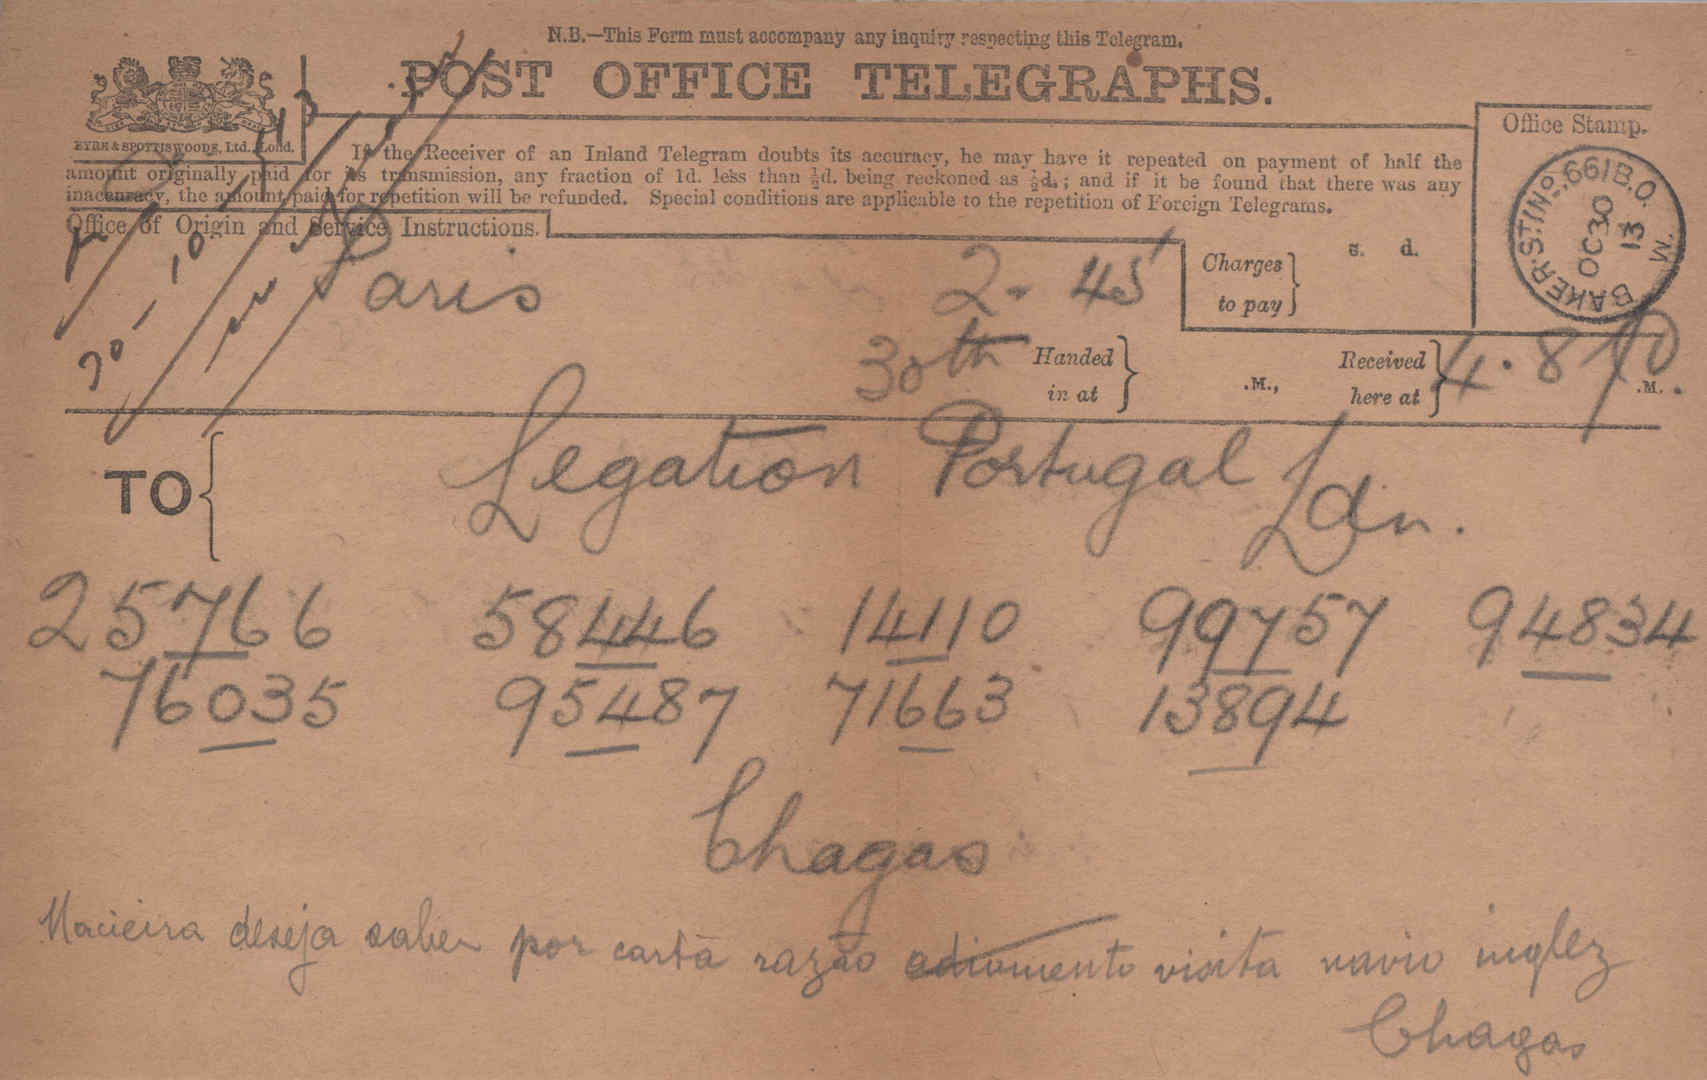 N.B.—This Form must accompany any inquiry respecting this Telegram.
POST OFFICE TELEGRAPHS.
EYRE & SPOTTISWOODE, Ltd., Lond.
If the Receiver of an Inland Telegram doubts its accuracy, he may have it repeated on payment of half the
amount originally paid for its transmission, any fraction of 1d. less than ½d. being reckoned as ½d.; and if it be found that there was any
inaccuracy, the amount paid for repetition will be refunded. Special conditions are applicable to the repetition of Foreign Telegrams.
Office Stamp.
BAKER ST(No. 66)B.O.
OC 30
13
Office of Origin and Service Instructions.
30-10-
Paris
2-45
Charges to pay
s. d.
30th
Handed in at
.M.,
Received here at
4.8
.M.
TO
Legation Portugal Ldn.
25766 58446 14110 99757 94834
76035 95487 71663 13894
Chagas
Macieira deseja saber por carta razão adiamento visita navio inglez
Chagas